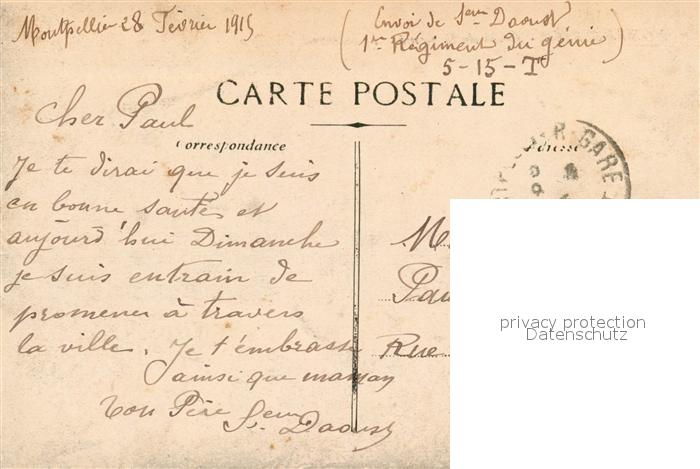 Montpellier 28 Février 1915
(Envoi de Daoust
1er Régiment du génie)
5-15-T
CARTE POSTALE
Cher Paul
Correspondance
Adresse
GARE
Je te dirai que je suis
en bonne santé et
aujourd'hui Dimanche
je suis entrain de
promener à travers
la ville. Je t'embrasse
ainsi que maman
Ton Père
Daoust
M
Pau
Rue
privacy protection
Datenschutz